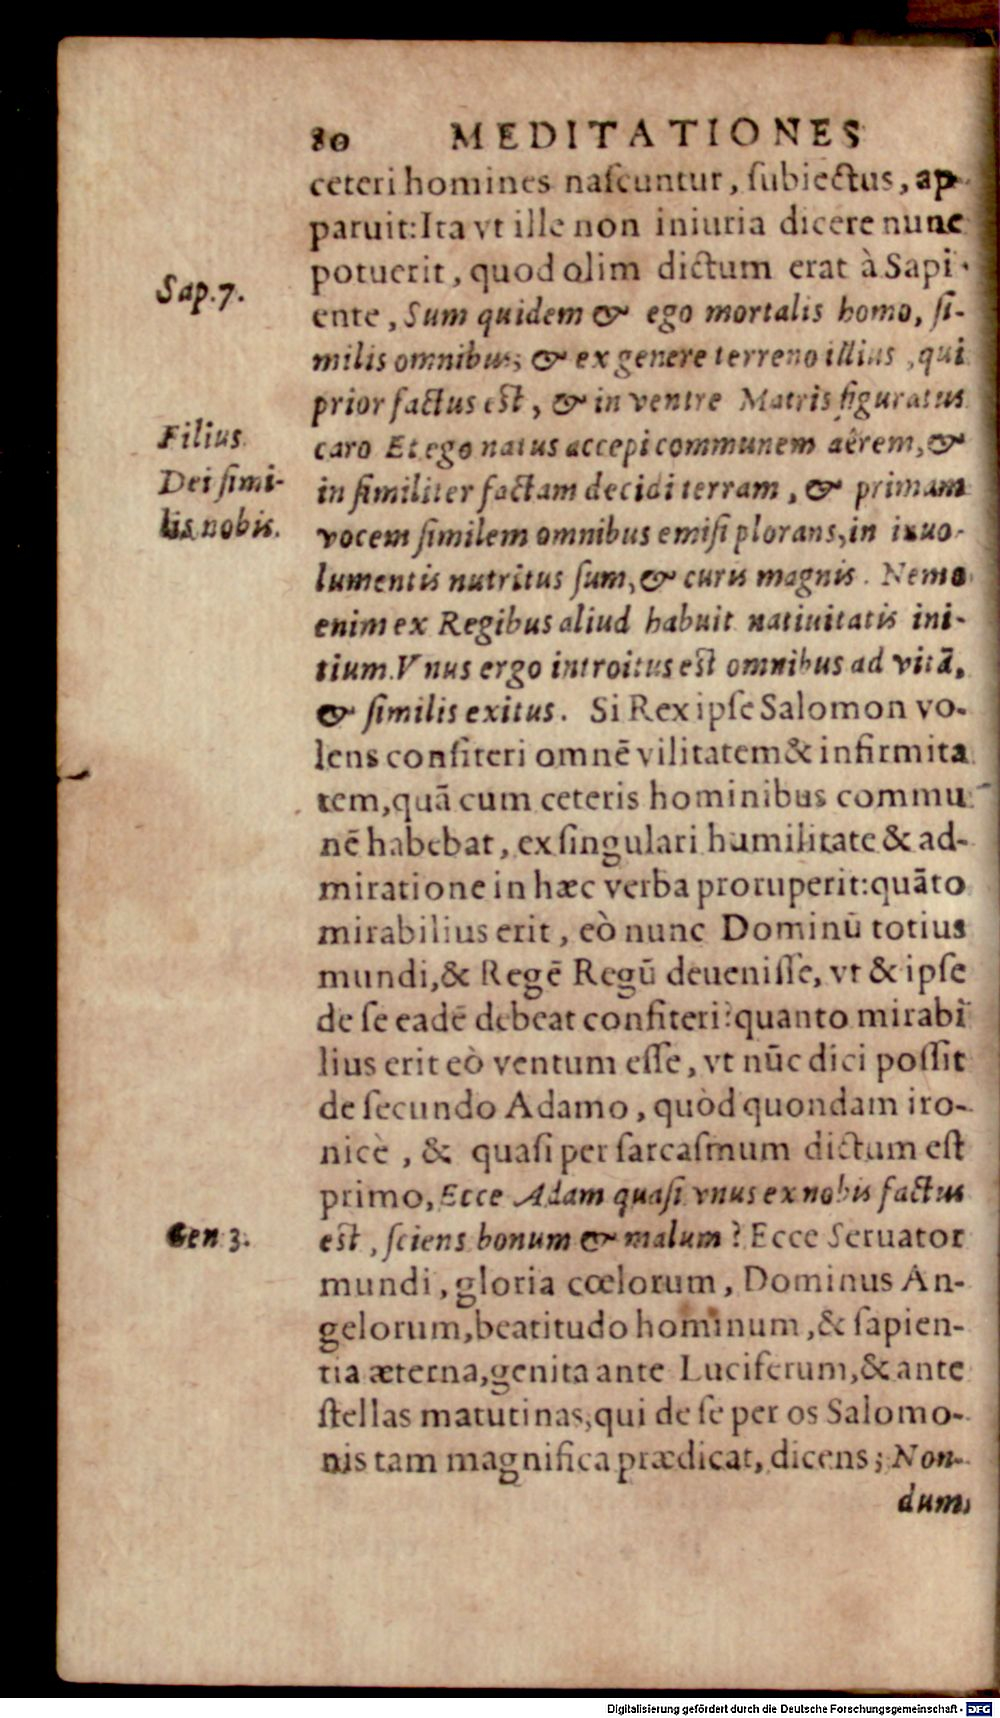 80 MEDITATIONES
ceteri homines naſcuntur, ſubiectus, ap-
paruit: Ita vt ille non iniuria dicere nunc
potuerit, quod olim dictum erat à Sapi-
Sap. 7.
ente, Sum quidem & ego mortalis homo, ſi-
milis omnibus; & ex genere terreno illius, qui
prior factus eſt, & in ventre Matris figuratus
Filius
Dei ſimi-
lis nobis.
caro Et ego natus accepi communem aêrem, &
in ſimiliter factam decidi terram, & primam
vocem ſimilem omnibus emiſi plorans, in inuo-
lumentis nutritus ſum, & curis magnis. Nemo
enim ex Regibus aliud habuit natiuitatis ini-
tium. Vnus ergo introitus eſt omnibus ad vitā,
& ſimilis exitus. Si Rex ipſe Salomon vo-
lens confiteri omnē vilitatem & infirmita
tem, quā cum ceteris hominibus commu
nē habebat, ex ſingulari humilitate & ad-
miratione in hæc verba proruperit: quāto
mirabilius erit, eò nunc Dominū totius
mundi, & Regē Regū deueniſſe, vt & ipſe
de ſe eadē debeat confiteri? quanto mirabi
lius erit eò ventum eſſe, vt nūc dici poſſit
de ſecundo Adamo, quòd quondam iro-
nicè, & quaſi per ſarcaſmum dictum eſt
primo, Ecce Adam quaſi vnus ex nobis factus
Gen 3.
eſt, ſciens bonum & malum? Ecce Seruator
mundi, gloria cœlorum, Dominus An-
gelorum, beatitudo hominum, & ſapien-
tia æterna, genita ante Luciferum, & ante
ſtellas matutinas, qui de ſe per os Salomo-
nis tam magnifica prædicat, dicens; Non-
dum
Digitalisierung gefördert durch die Deutsche Forschungsgemeinschaft - DFG